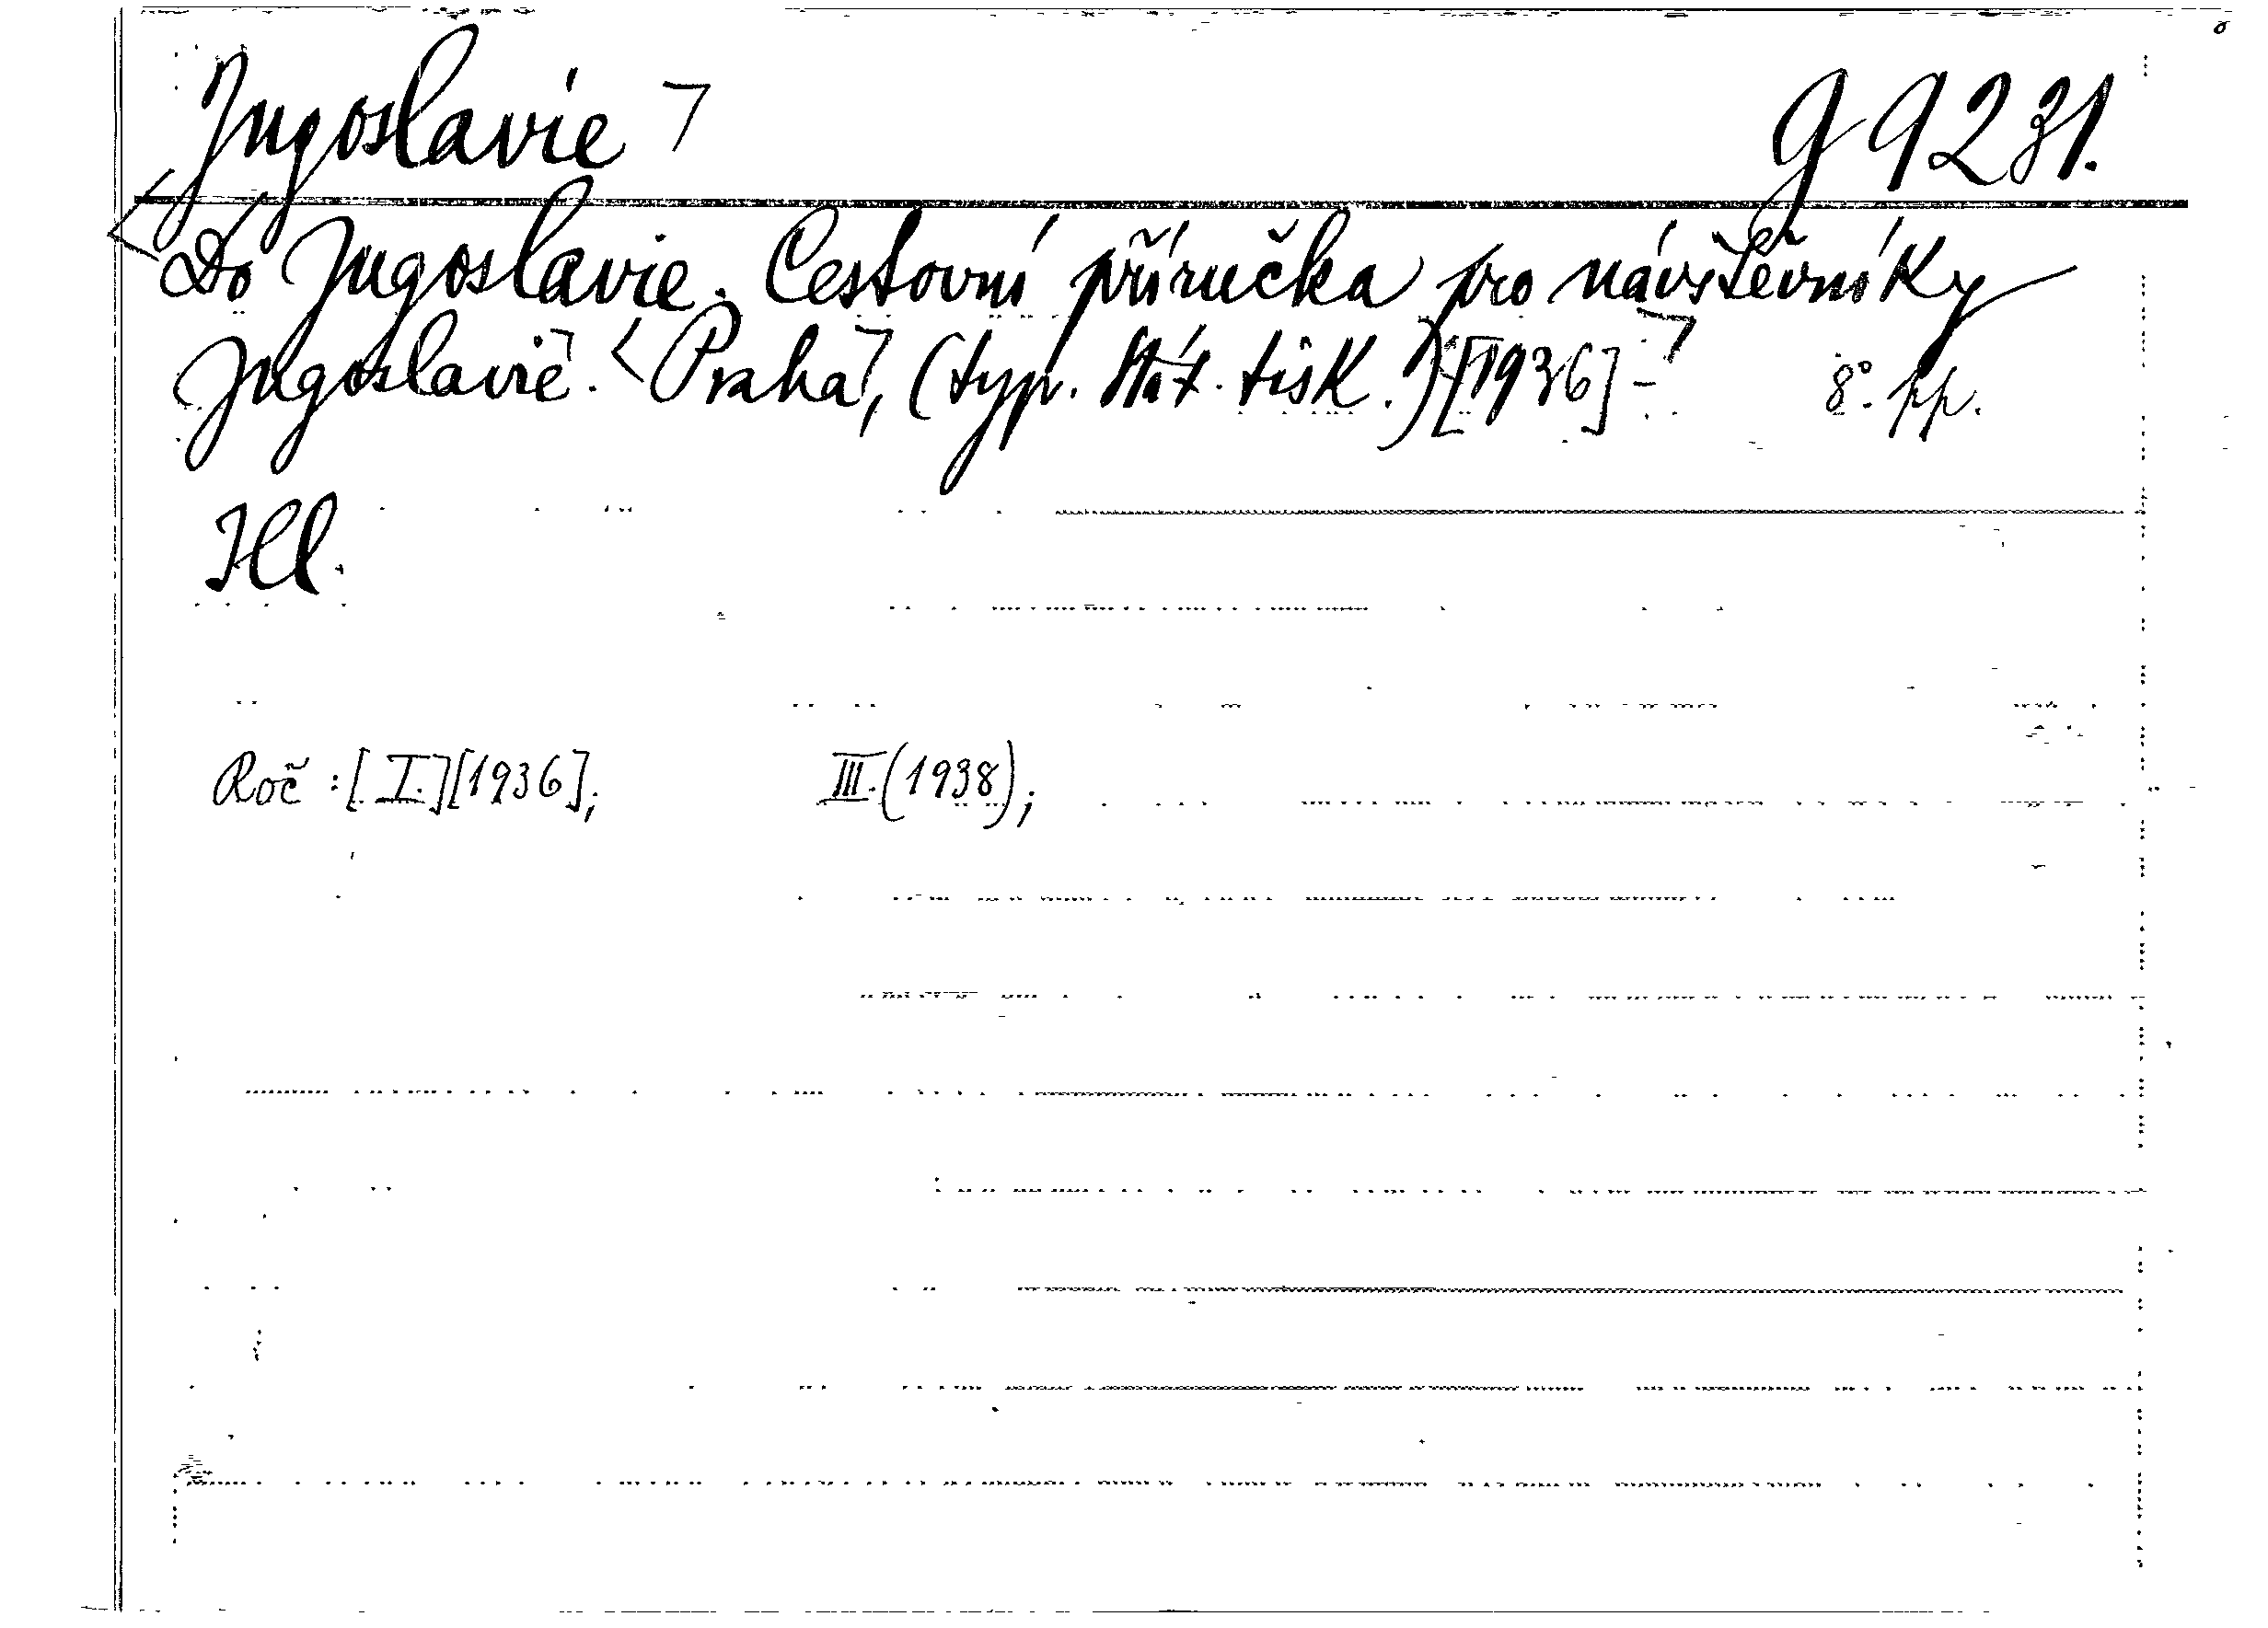 Jugoslavie g 9231.
Do Jugoslavie. Cestovní příručka pro návštěvníky
Jugoslavie. Praha, (typ. Stát. tisk.) [1936] - 8°. pp.
Ill.
Roč: [I.] [1936]; III. (1938);